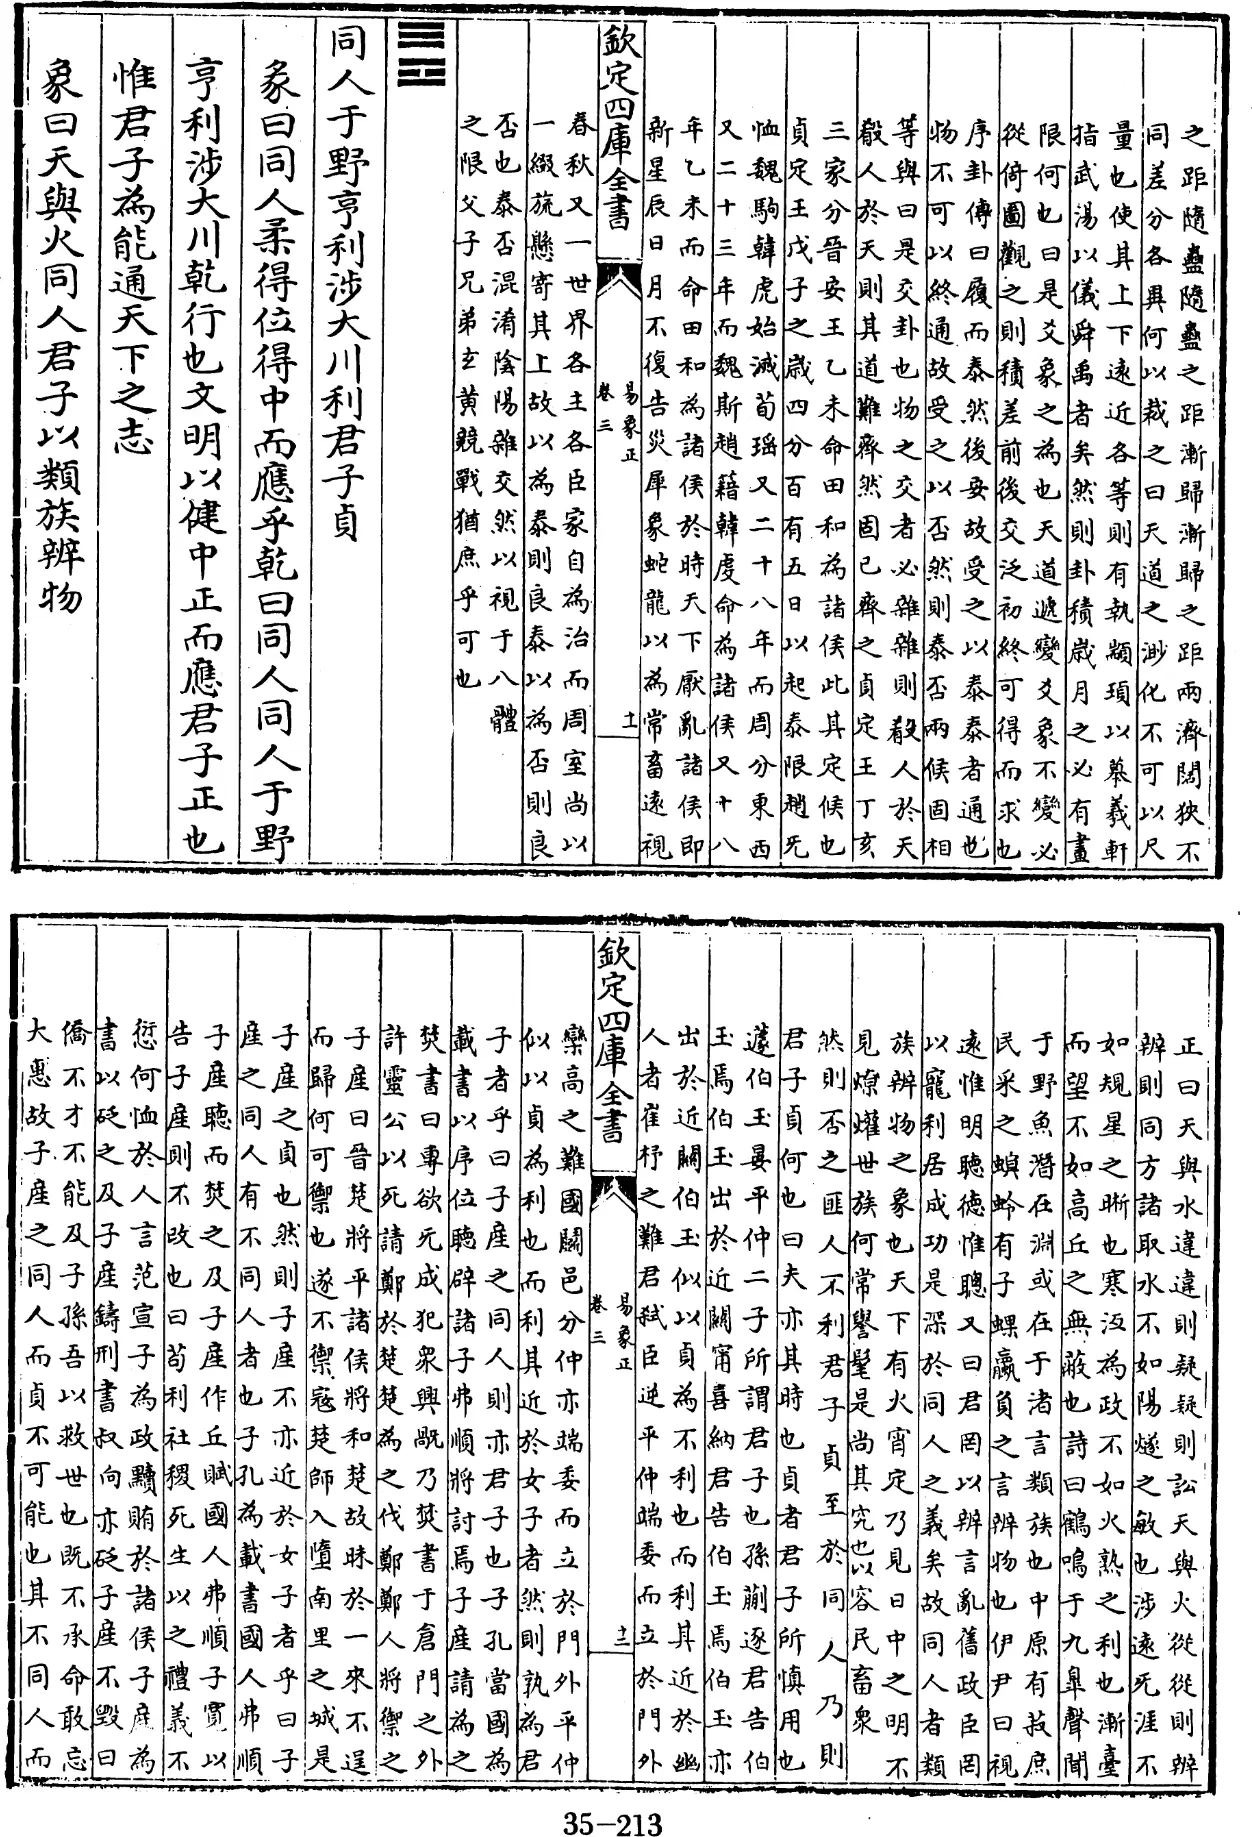 之距隨蠱隨蠱之距漸歸漸歸之距兩濟闊狹不
同差分各異何以裁之曰天道之渺化不可以尺
量也使其上下遠近各等則有執顓頊以摹羲軒
指武湯以儀舜禹者矣然則卦積歲月之必有畫
限何也曰是爻象之為也天道遞變爻象不變必
從倚圖觀之則積差前後交泛初終可得而求也
序卦傳曰履而泰然後安故受之以泰泰者通也
物不可以終通故受之以否然則泰否兩候固相
等與曰是交卦也物之交者必雜雜則殽人於天
殽人於天則其道難齊然固已齊之貞定王丁亥
三家分晉安王乙未命田和為諸侯此其定候也
貞定王戊子之歲四分百有五日以起泰限趙旡
恤魏駒韓虎始滅荀瑤又二十八年而周分東西
又二十三年而魏斯趙籍韓虔命為諸侯又十八
年乙未而命田和為諸侯於時天下厭亂諸侯即
新星辰日月不復告災犀象蛇龍以為常畜遠視
欽定四庫全書
易象正
卷三
十一
春秋又一世界各主各臣家自為治而周室尚以
一綴旒懸寄其上故以為泰則良泰以為否則良
否也泰否混淆陰陽雜交然以視于八體
之限父子兄弟玄黃競戰猶庶乎可也
䷌
同人于野亨利涉大川利君子貞
彖曰同人柔得位得中而應乎乾曰同人同人于野
亨利涉大川乾行也文明以健中正而應君子正也
惟君子為能通天下之志
象曰天與火同人君子以類族辨物
正曰天與水違違則疑疑則訟天與火從從則辨
辨則同方諸取水不如陽燧之敏也涉遠死涯不
如規星之晰也寒沍為政不如火熟之利也漸臺
而望不如高丘之無蔽也詩曰鶴鳴于九臯聲聞
于野魚潛在淵或在于渚言類族也中原有菽庶
民采之螟蛉有子蜾蠃負之言辨物也伊尹曰視
遠惟明聽德惟聰又曰君罔以辨言亂舊政臣罔
以寵利居成功是深於同人之義矣故同人者類
族辨物之象也天下有火宵定乃見日中之明不
見燎爟世族何常譽髦是尚其究也以容民畜衆
然則否之匪人不利君子貞至於同人乃則
君子貞何也曰夫亦其時也貞者君子所慎用也
蘧伯玉晏平仲二子所謂君子也孫蒯逐君告伯
玉焉伯玉出於近關甯喜納君告伯玉焉伯玉亦
出於近關伯玉似以貞為不利也而利其近於幽
人者崔杼之難君弒臣逆平仲端委而立於門外
欽定四庫全書
易象正
卷三
十二
欒高之難國鬭邑分仲亦端委而立於門外平仲
似以貞為利也而利其近於女子者然則孰為君
子者乎曰子產之同人則亦君子也子孔當國為
載書以序位聽辟諸子弗順將討焉子產請為之
焚書曰專欲旡成犯衆興戤乃焚書于倉門之外
許靈公以死請鄭於楚楚為之伐鄭鄭人將禦之
子產曰晉楚將平諸侯將和楚故昧於一來不逞
而歸何可禦也遂不禦寇楚師入墮南里之城是
子產之貞也然則子產不亦近於女子者乎曰子
產之同人有不同人者也子孔為載書國人弗順
子產聽而焚之及子產作丘賦國人弗順子寬以
告子產則不改也曰苟利社稷死生以之禮義不
愆何恤於人言范宣子為政黷賄於諸侯子產為
書以砭之及子產鑄刑書叔向亦砭子產不毀曰
僑不才不能及子孫吾以救世也既不承命敢忘
大惠故子產之同人而貞不可能也其不同人而
35-213